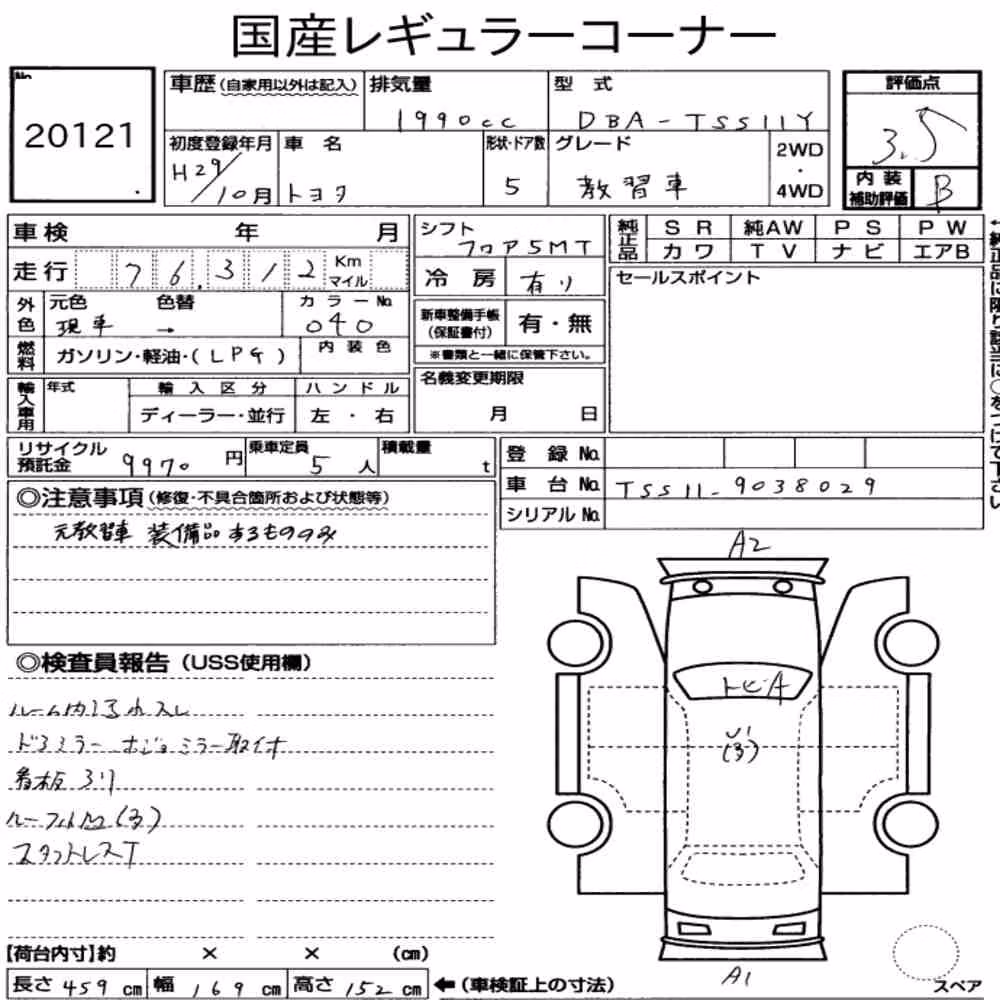 国産レギュラーコーナー
No.
20121
車歴(自家用以外は記入)
排気量
1990cc
型 式
DBA-TSS11Y
評価点
3.5
初度登録年月
H29/10月
車 名
トヨタ
形状・ドア数
5
グレード
教習車
2WD
・
4WD
内装
補助評価
B
車検 年 月
走行 76.312 Km
マイル
シフト
フロア5MT
冷 房 有り
純正品
SR 純AW PS PW
カワ TV ナビ エアB
外色
元色 現車
色替 →
カラーNo.
040
新車整備手帳
(保証書付)
有・無
※書類と一緒に保管下さい。
セールスポイント
燃料
ガソリン・軽油・(LPG)
内装色
輸入車用
年式
輸入区分
ハンドル
ディーラー・並行
左・右
名義変更期限
月 日
リサイクル
預託金 9970 円
乗車定員 5 人
積載量 t
登 録 No.
車 台 No. TSS11-9038029
シリアル No.
◎注意事項(修復・不具合箇所および状態等)
元教習車 装備品あるもののみ
◎検査員報告(USS使用欄)
ルーム内汚れスレ
ドアミラー ホジョミラー取付
看板
スタットレスT
A2
トビA
A1
スペア
【荷台内寸】約 × × (cm)
長さ 459 cm 幅 169 cm 高さ 152 cm ←(車検証上の寸法)